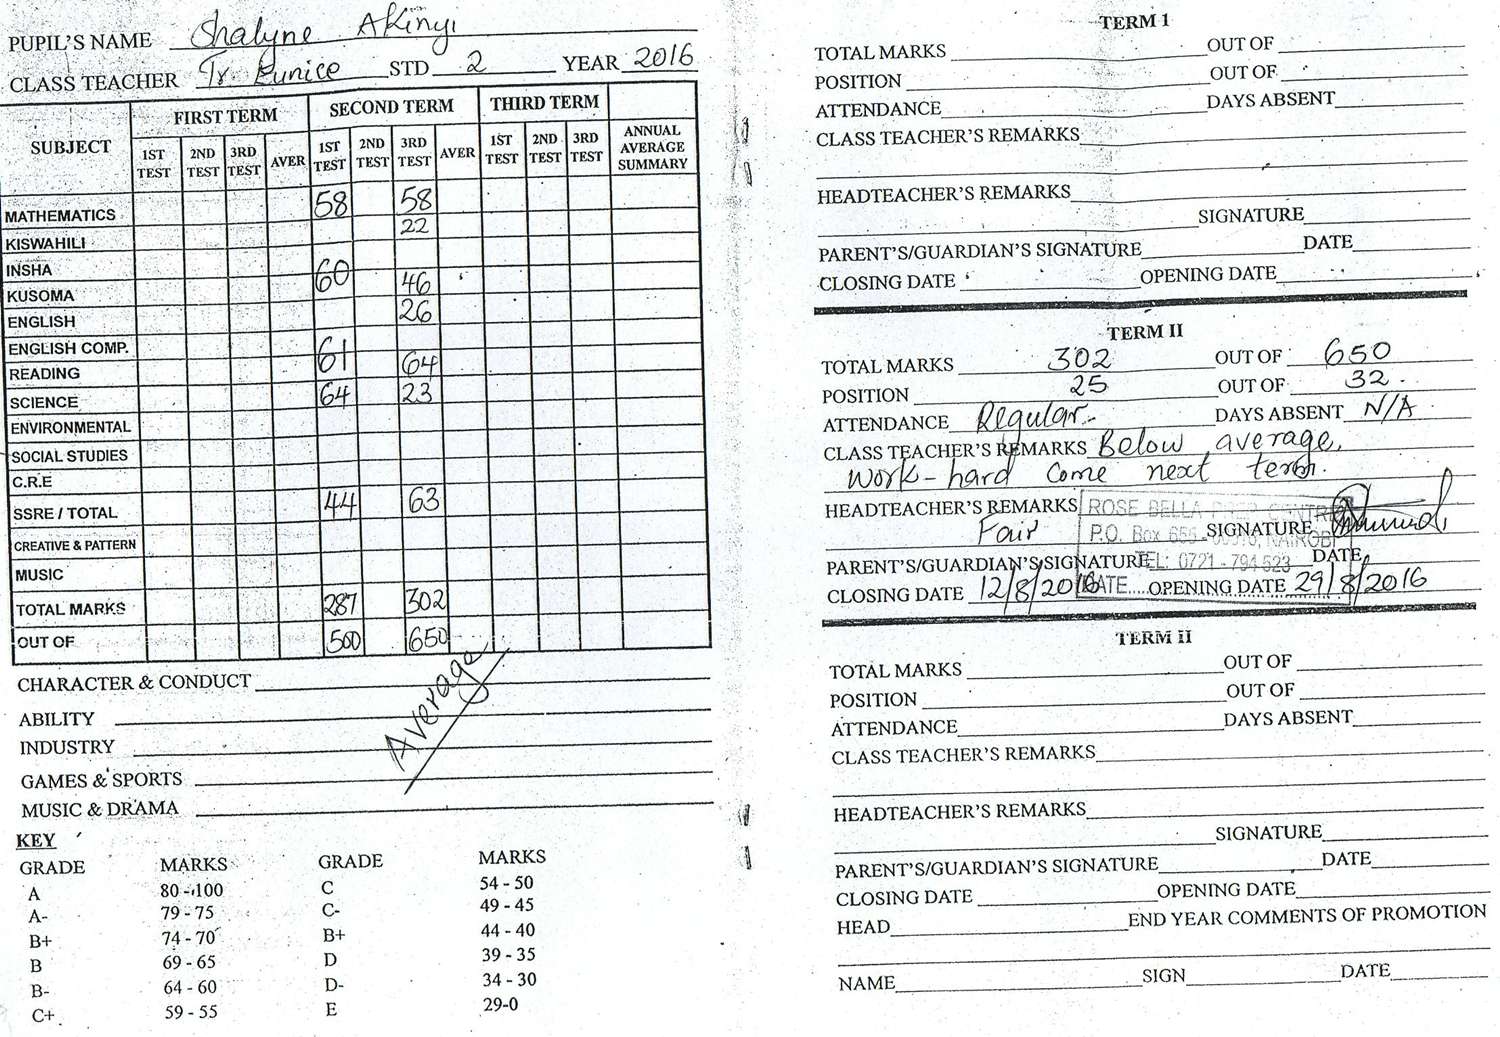 PUPIL'S NAME Shalyne Akinyi
CLASS TEACHER Tr. Eunice STD 2 YEAR 2016
SUBJECT FIRST TERM SECOND TERM THIRD TERM ANNUAL AVERAGE SUMMARY
1ST TEST 2ND TEST 3RD TEST AVER 1ST TEST 2ND TEST 3RD TEST AVER 1ST TEST 2ND TEST 3RD TEST
MATHEMATICS 58 58
KISWAHILI 22
INSHA 60
KUSOMA 46
ENGLISH 26
ENGLISH COMP. 61
READING 64
SCIENCE 64 23
ENVIRONMENTAL
SOCIAL STUDIES
C.R.E
SSRE / TOTAL 44 63
CREATIVE & PATTERN
MUSIC
TOTAL MARKS 287 302
OUT OF 500 650
CHARACTER & CONDUCT
ABILITY
INDUSTRY
GAMES & SPORTS
MUSIC & DRAMA
Average
KEY
GRADE MARKS GRADE MARKS
A 80 - 100 C 54 - 50
A- 79 - 75 C- 49 - 45
B+ 74 - 70 B+ 44 - 40
B 69 - 65 D 39 - 35
B- 64 - 60 D- 34 - 30
C+ 59 - 55 E 29-0
TERM I
TOTAL MARKS OUT OF
POSITION OUT OF
ATTENDANCE DAYS ABSENT
CLASS TEACHER'S REMARKS
HEADTEACHER'S REMARKS
SIGNATURE
PARENT'S/GUARDIAN'S SIGNATURE DATE
CLOSING DATE OPENING DATE
TERM II
TOTAL MARKS 302 OUT OF 650
POSITION 25 OUT OF 32
ATTENDANCE Regular DAYS ABSENT N/A
CLASS TEACHER'S REMARKS Below average,
work-hard come next term.
HEADTEACHER'S REMARKS ROSE BELLA PREP CENTRE
Fair P.O. Box NAIROBI SIGNATURE
PARENT'S/GUARDIAN'S SIGNATURE TEL: 0721 - 794523 DATE
CLOSING DATE 12/8/2016 DATE.... OPENING DATE 29/8/2016
TERM II
TOTAL MARKS OUT OF
POSITION OUT OF
ATTENDANCE DAYS ABSENT
CLASS TEACHER'S REMARKS
HEADTEACHER'S REMARKS
SIGNATURE
PARENT'S/GUARDIAN'S SIGNATURE DATE
CLOSING DATE OPENING DATE
HEAD END YEAR COMMENTS OF PROMOTION
NAME SIGN DATE